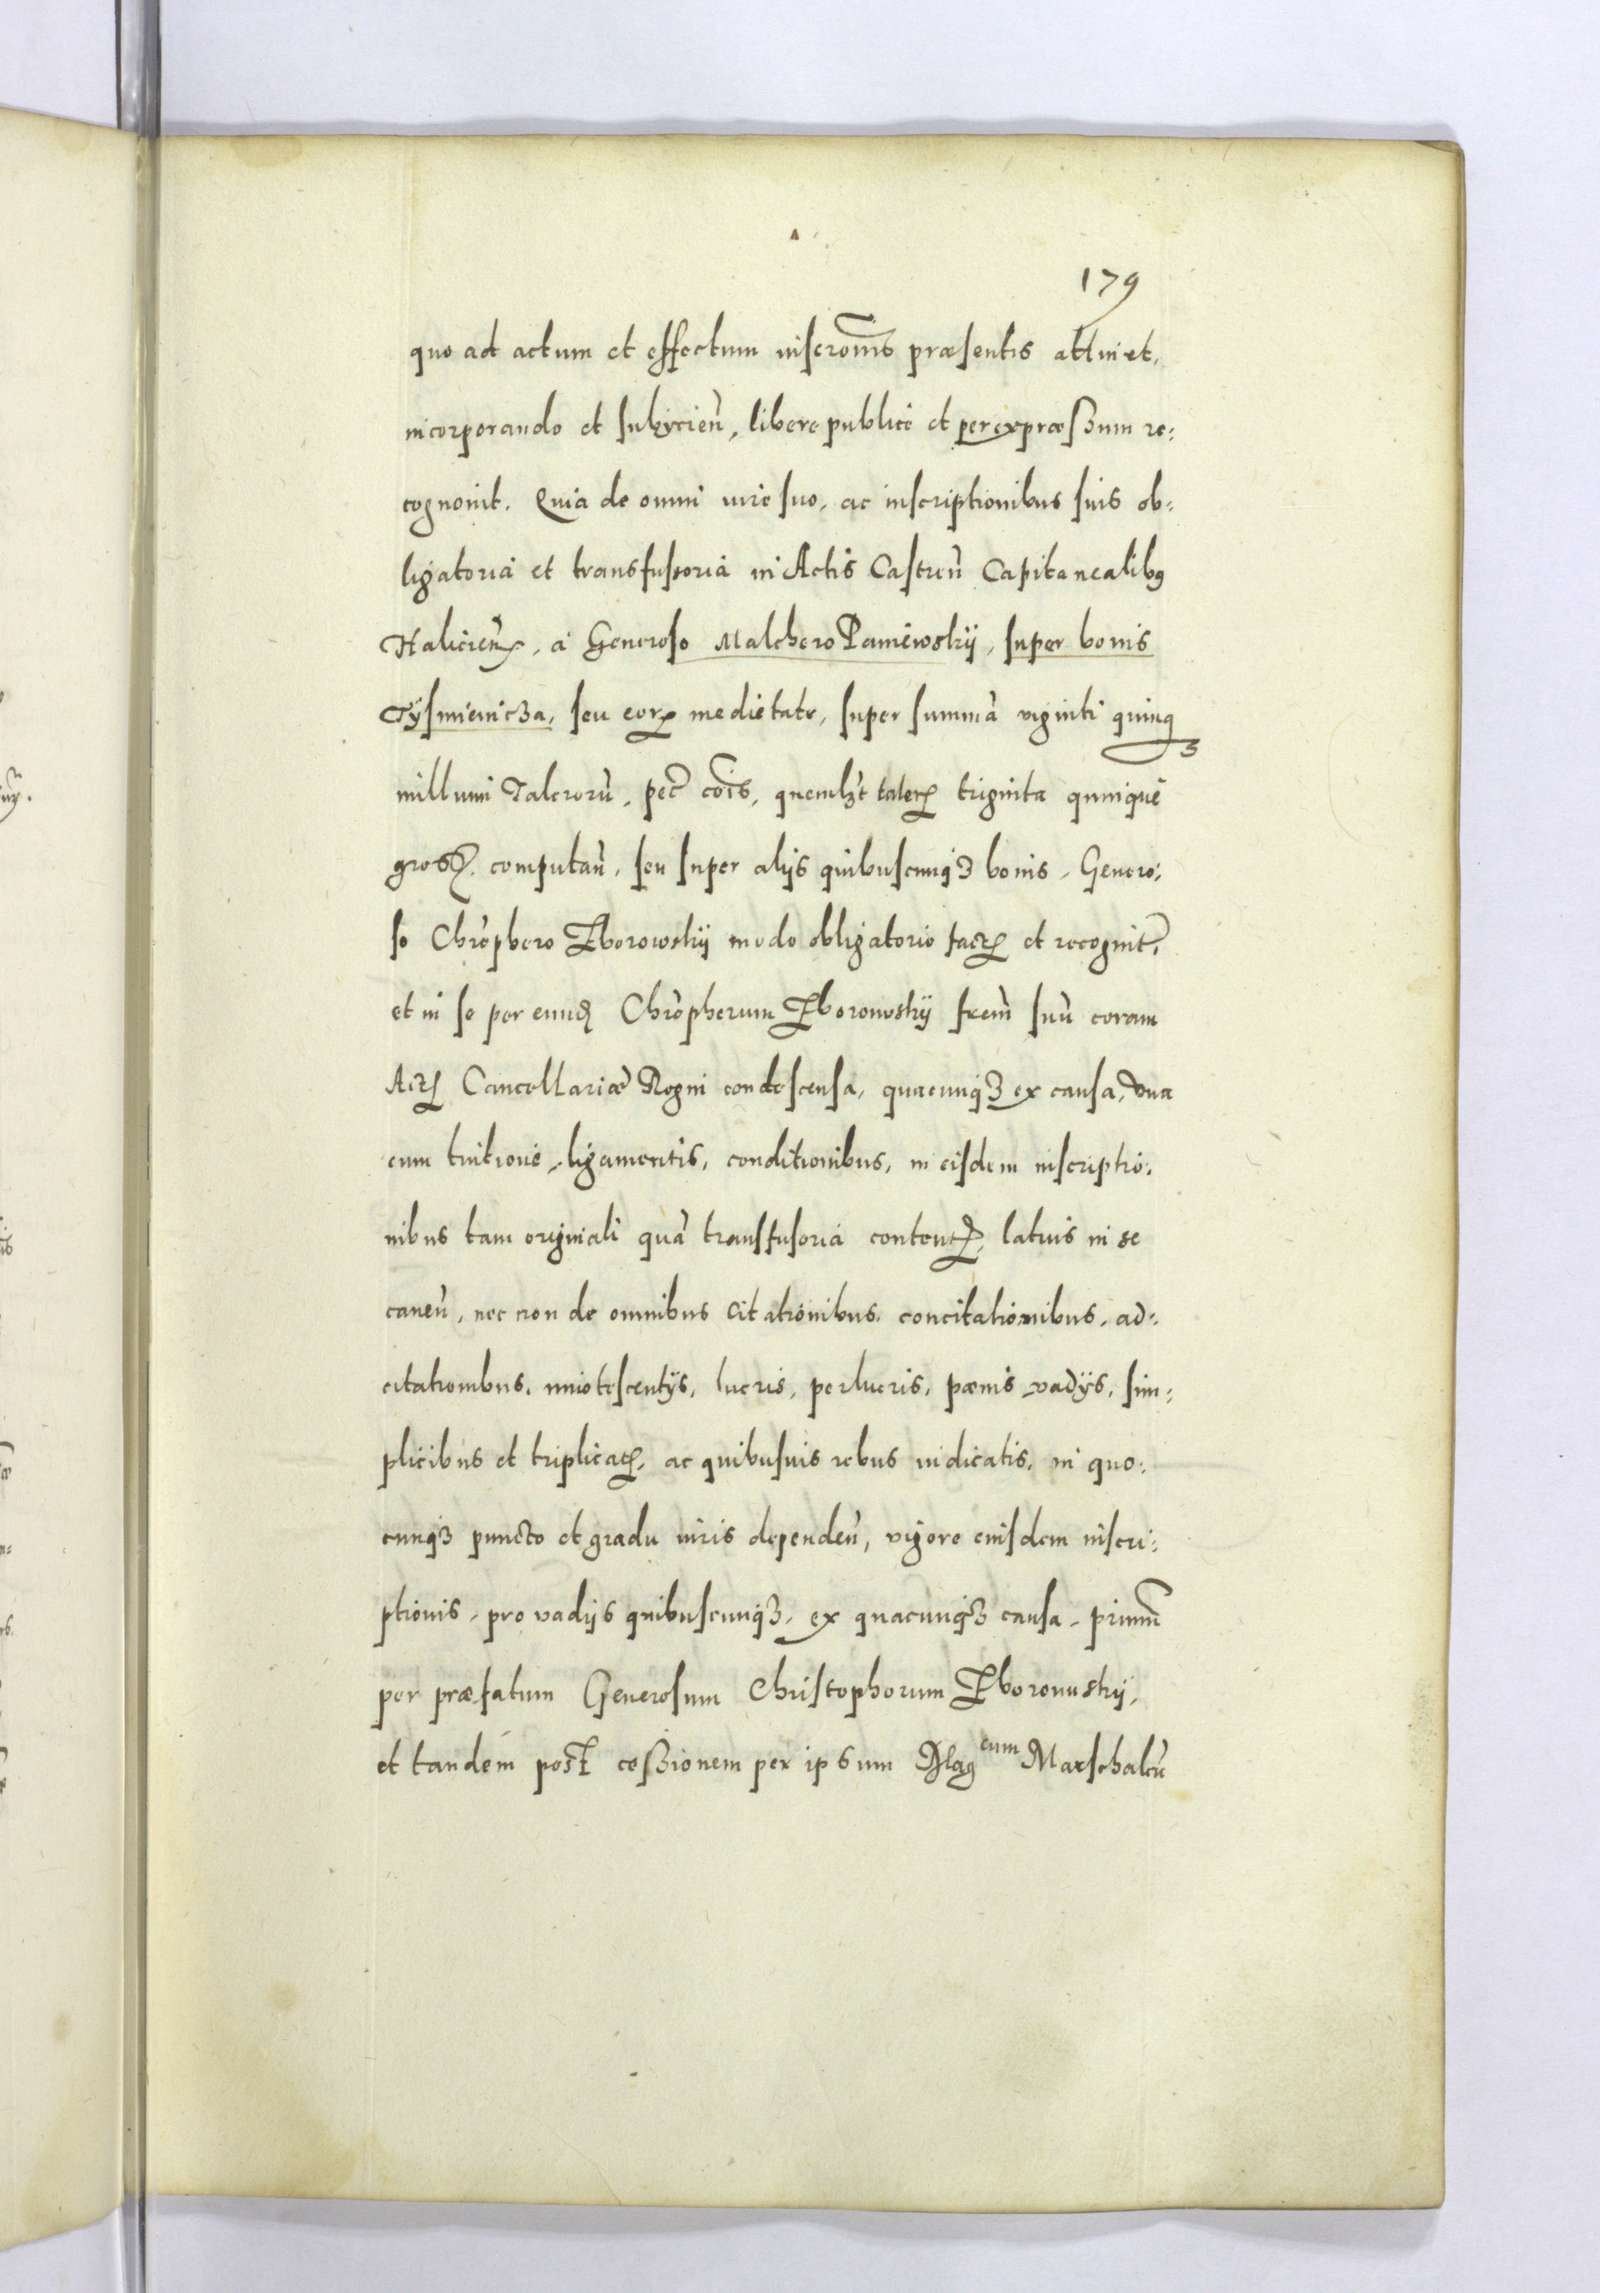 179
quo ad actum et effectum inscrōnis præsentis attinet,
incorporando et subÿcieñ, libere publice et per expræssum re:
cognouit. Quia de omni iure suo, ac inscriptionibus suis ob:
ligatoria et transfusoria in Actis Castreñ Capitanealibus
Halicieñ, a Generoso Malchero Paniewskÿ, super bonis
Tÿsmienicza, seu eorꝝ medietate, super summā viginti quinqꝫ
millium Talerorū, pec̄ cōis, quemlꝫt talerꝝ triginta quinque
grosꝝ. computañ, seu super alÿs quibuscunqꝫ bonis, Genero:
so Chrōphero Zborowskÿ modo obligatorio factꝝ et recognit̄,
et in se per eundꝫ Chrōpherum Zborowskÿ frem̄ suū coram
Actꝫ Cancellariæ Regni condescensa, quacunqꝫ ex causa, vna
cum tuitione, ligamentis, conditionibus, in eisdem inscriptio:
nibus tam originali quā transfusoria contentꝫ, latius in se
caneñ, nec non de omnibus citationibus, concitationibus, ad:
citationibus, innotescentÿs, lucris, perlucris, pænis vadÿs, sim:
plicibus et triplicatꝫ, ac quibusuis rebus iudicatis, in quo:
cunqꝫ puncto et gradu iuris dependeñ, vigore eiusdem inscri:
ptionis, pro vadÿs quibuscunqꝫ, ex quacunqꝫ causa, primū
per præfatum Generosum Christophorum Zborowskÿ,
et tandem post cessionem per ipsum Mag cum Marschalcū